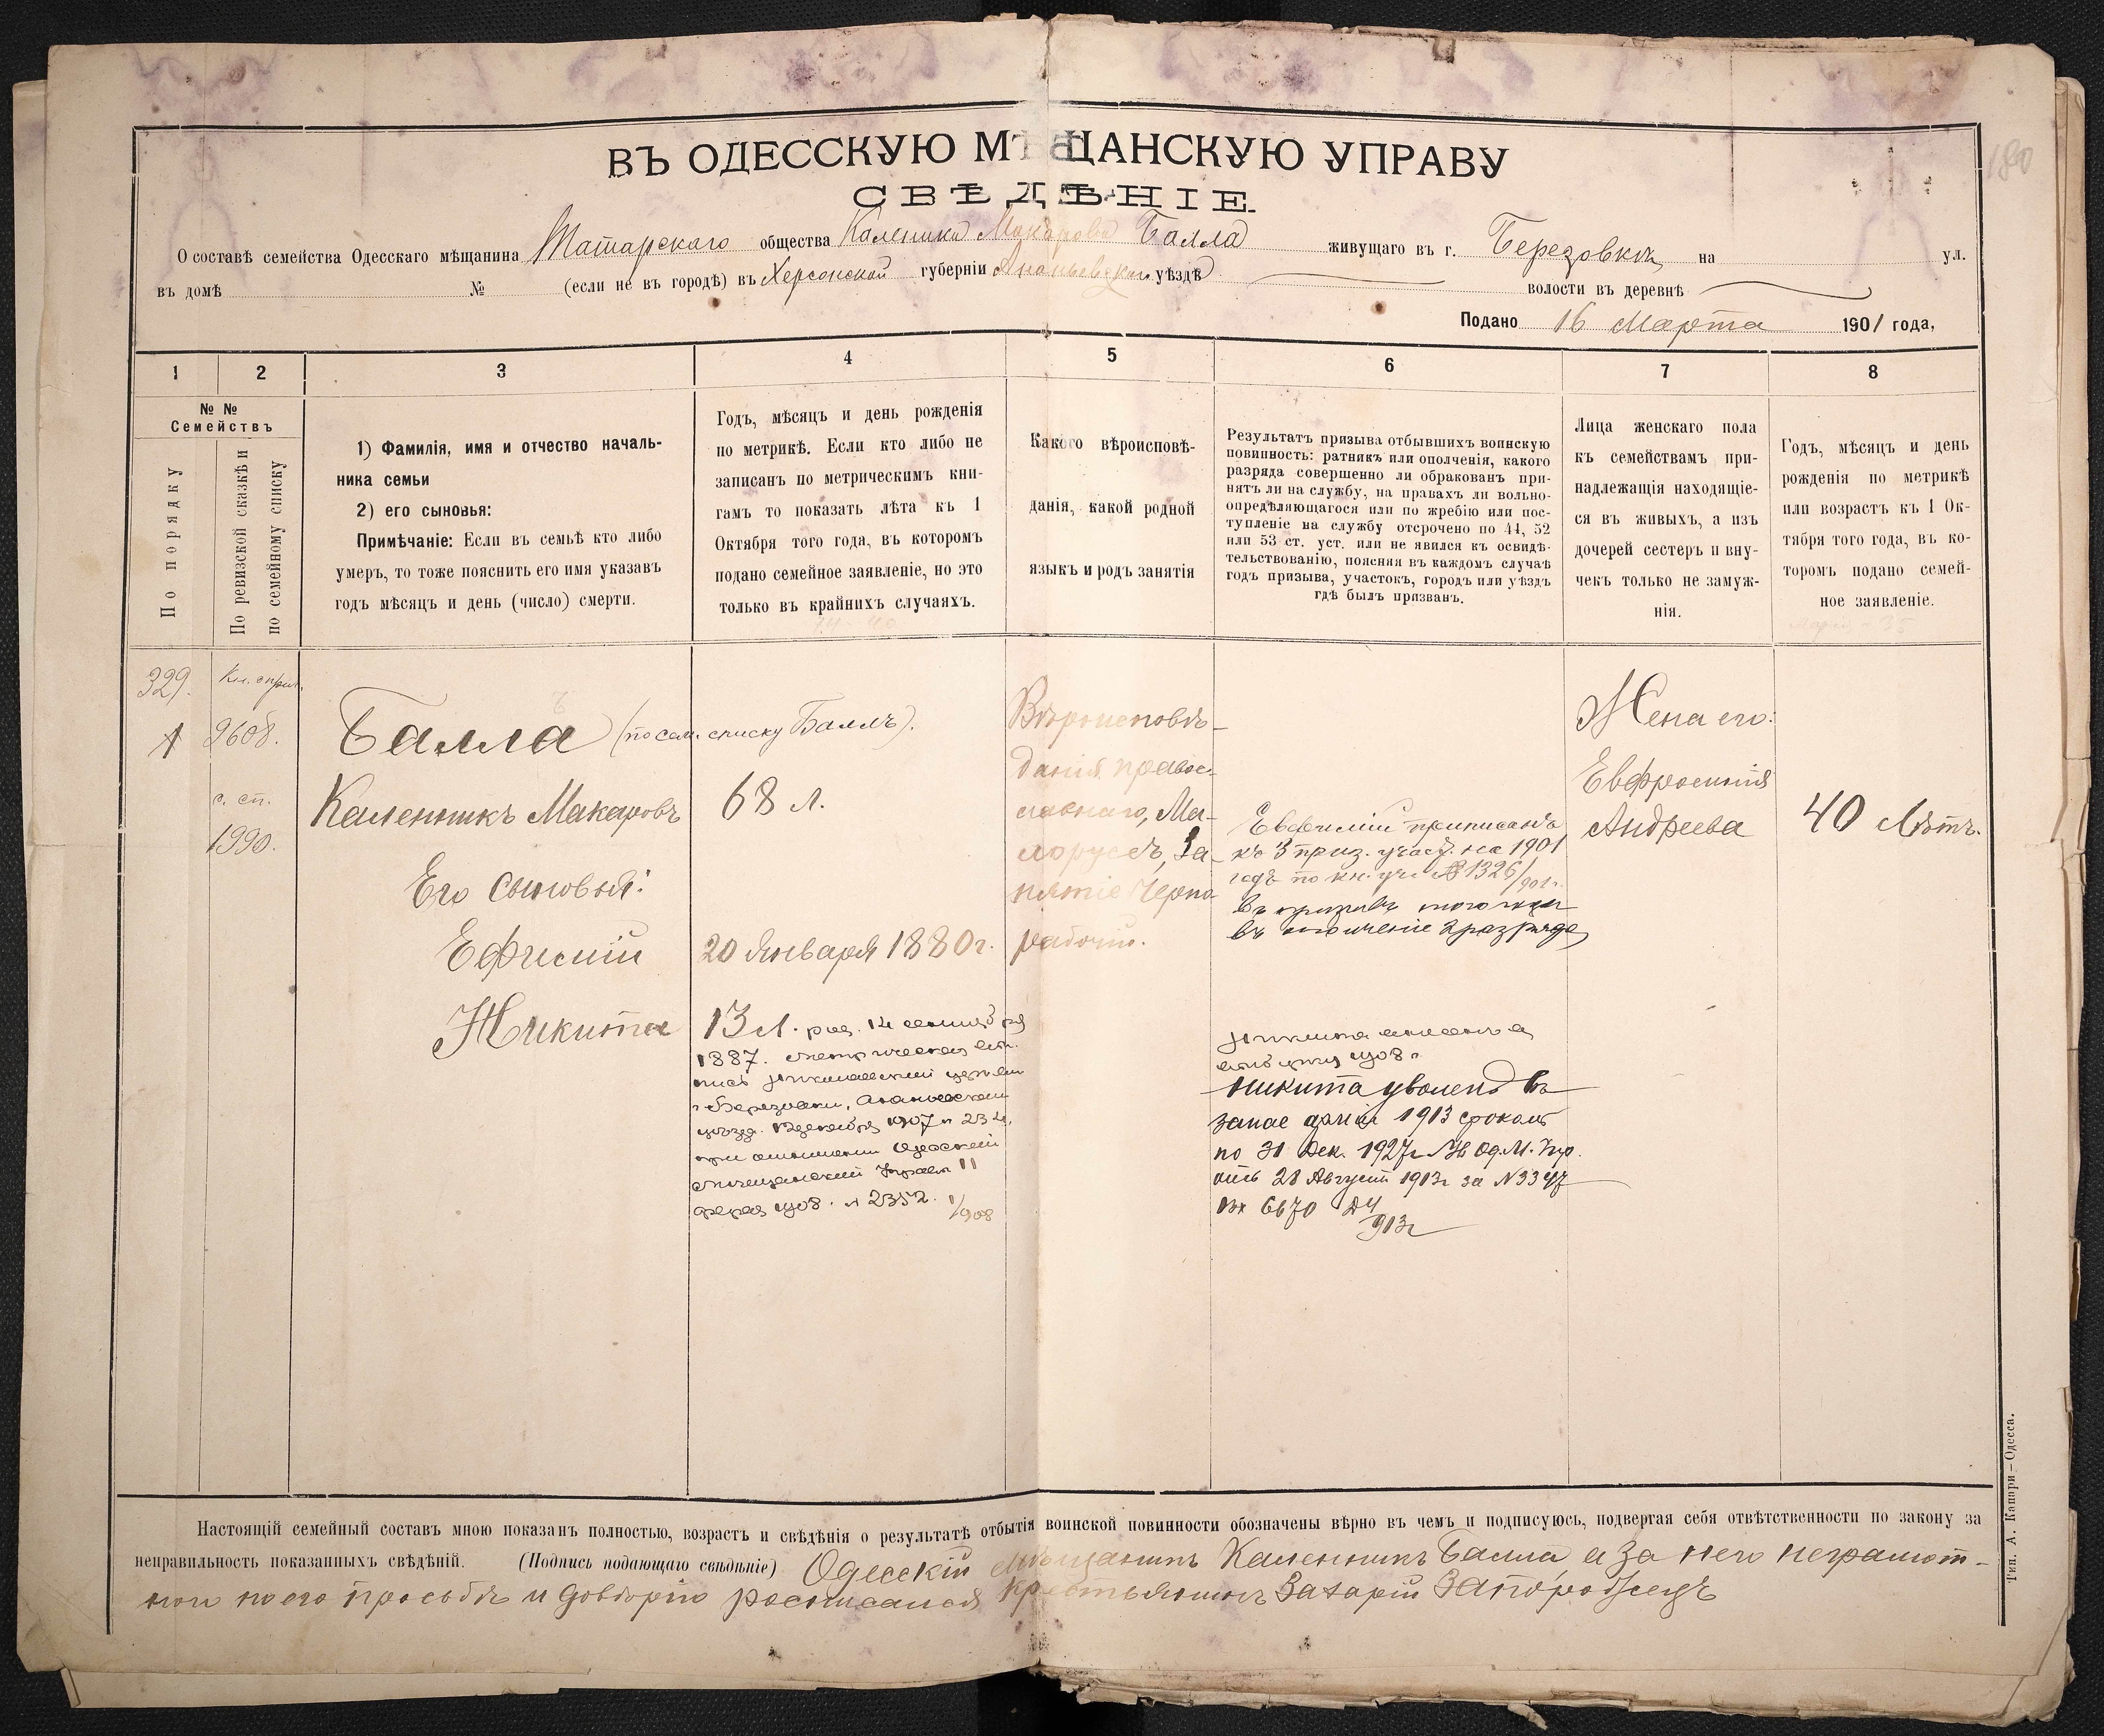 180
ВЪ ОДЕССКУЮ МѢЩАНСКУЮ УПРАВУ
СВѢДѢНІЕ
О составѣ семейства Одесскаго мѣщанина Татарскаго общества Каленика Макарова Балла живущаго въ г. Березовкѣ на ул.
въ домѣ № (если не въ городѣ) въ Херсонской губерніи Ананьевскаго уѣздѣ волости въ деревнѣ
Подано 16 Марта 1901 года,
1 2 3 4 5 6 7 8
№ №
Семействъ
По порядку
По ревизской сказкѣ и
по семейному списку
1) Фамилія, имя и отчество началь-
ника семьи
2) его сыновья:
Примѣчаніе: Если въ семьѣ кто либо
умеръ, то тоже пояснить его имя указавъ
годъ мѣсяцъ и день (число) смерти.
Годъ, мѣсяцъ и день рожденія
по метрикѣ. Если кто либо не
записанъ по метрическимъ кни-
гамъ то показать лѣта къ 1
Октября того года, въ которомъ
подано семейное заявленіе, но это
только въ крайнихъ случаяхъ.
Какого вѣроисповѣ-
данія, какой родной
языкъ и родъ занятія
Результатъ призыва отбывшихъ воинскую
повинность: ратникъ или ополченія, какого
разряда совершенно ли обракованъ при-
нятъ ли на службу, на правахъ ли вольно-
опредѣляющагося или по жребію или пос-
тупленіе на службу отсрочено по 44, 52
или 53 ст. уст. или не явился къ освидѣ-
тельствованію, поясняя въ каждомъ случаѣ
годъ призыва, участокъ, городъ или уѣздъ
гдѣ былъ призванъ.
Лица женскаго пола
къ семействамъ при-
надлежащія находящіе-
ся въ живыхъ, а изъ
дочерей сестеръ и вну-
чекъ только не замуж-
нія.
Годъ, мѣсяцъ и день
рожденія по метрикѣ
или возрастъ къ 1 Ок-
тября того года, въ ко-
торомъ подано семей-
ное заявленіе.
329.
1
Кн. прил.
2608.
с. сп.
1990.
Балла (по сем. списку Баллъ).
Каленникъ Макаровъ
Его сыновья:
Ефимій
Никита
68 л.
20 Января 1880 г.
13 л. род. 12 сентября
1887. Метрическая вы-
пись Николаевской церкви
г. Березовки, Ананьевскаго
уѣзда. 12 декабря 1907 № 234,
при отношеніи Одесской
Мѣщанской Управы 11
февр. 1908. № 2352. 1/908
Вѣроисповѣ-
данія правос-
лавнаго, Ма-
лоруссъ, За-
нятіе Черно-
рабочій.
Евфимій приписанъ
къ 3 приз. участ. на 1901
годъ по кн. уч. № 1326/901 г.
въ призывъ того года
въ ополченіе 2 разряда
Никита
1908 г.
Никита уволенъ въ
запас арміи 1913 срокомъ
по 31 Дек. 1927 г. Од. М. Упр.
отъ 28 Августа 1913 г за № 3347
Вх 6670 Д4
913 г
Жена его:
Евфросинія
Андреева
40 Лѣтъ.
Настоящій семейный составъ мною показанъ полностью, возрастъ и свѣдѣнія о результатѣ отбытія воинской повинности обозначены вѣрно въ чемъ и подписуюсь, подвергая себя отвѣтственности по закону за
неправильность показанныхъ свѣдѣній. (Подпись подающаго свѣдѣніе) Одесскій Мѣщанинъ Каленникъ Балла а за него неграмот-
наго по его просьбѣ и довѣрію росписался Крестьянинъ Захарій Запорожецъ
Тип. А. Капари – Одесса.